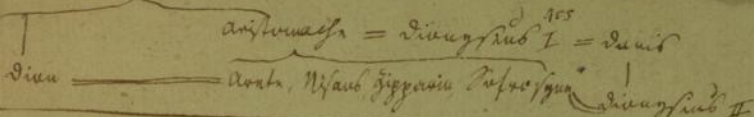 Aristomache = Dionysius I = Doris
Dion = Arete, Nisaeus, Hipparin, Sofrosyne Dionysius II